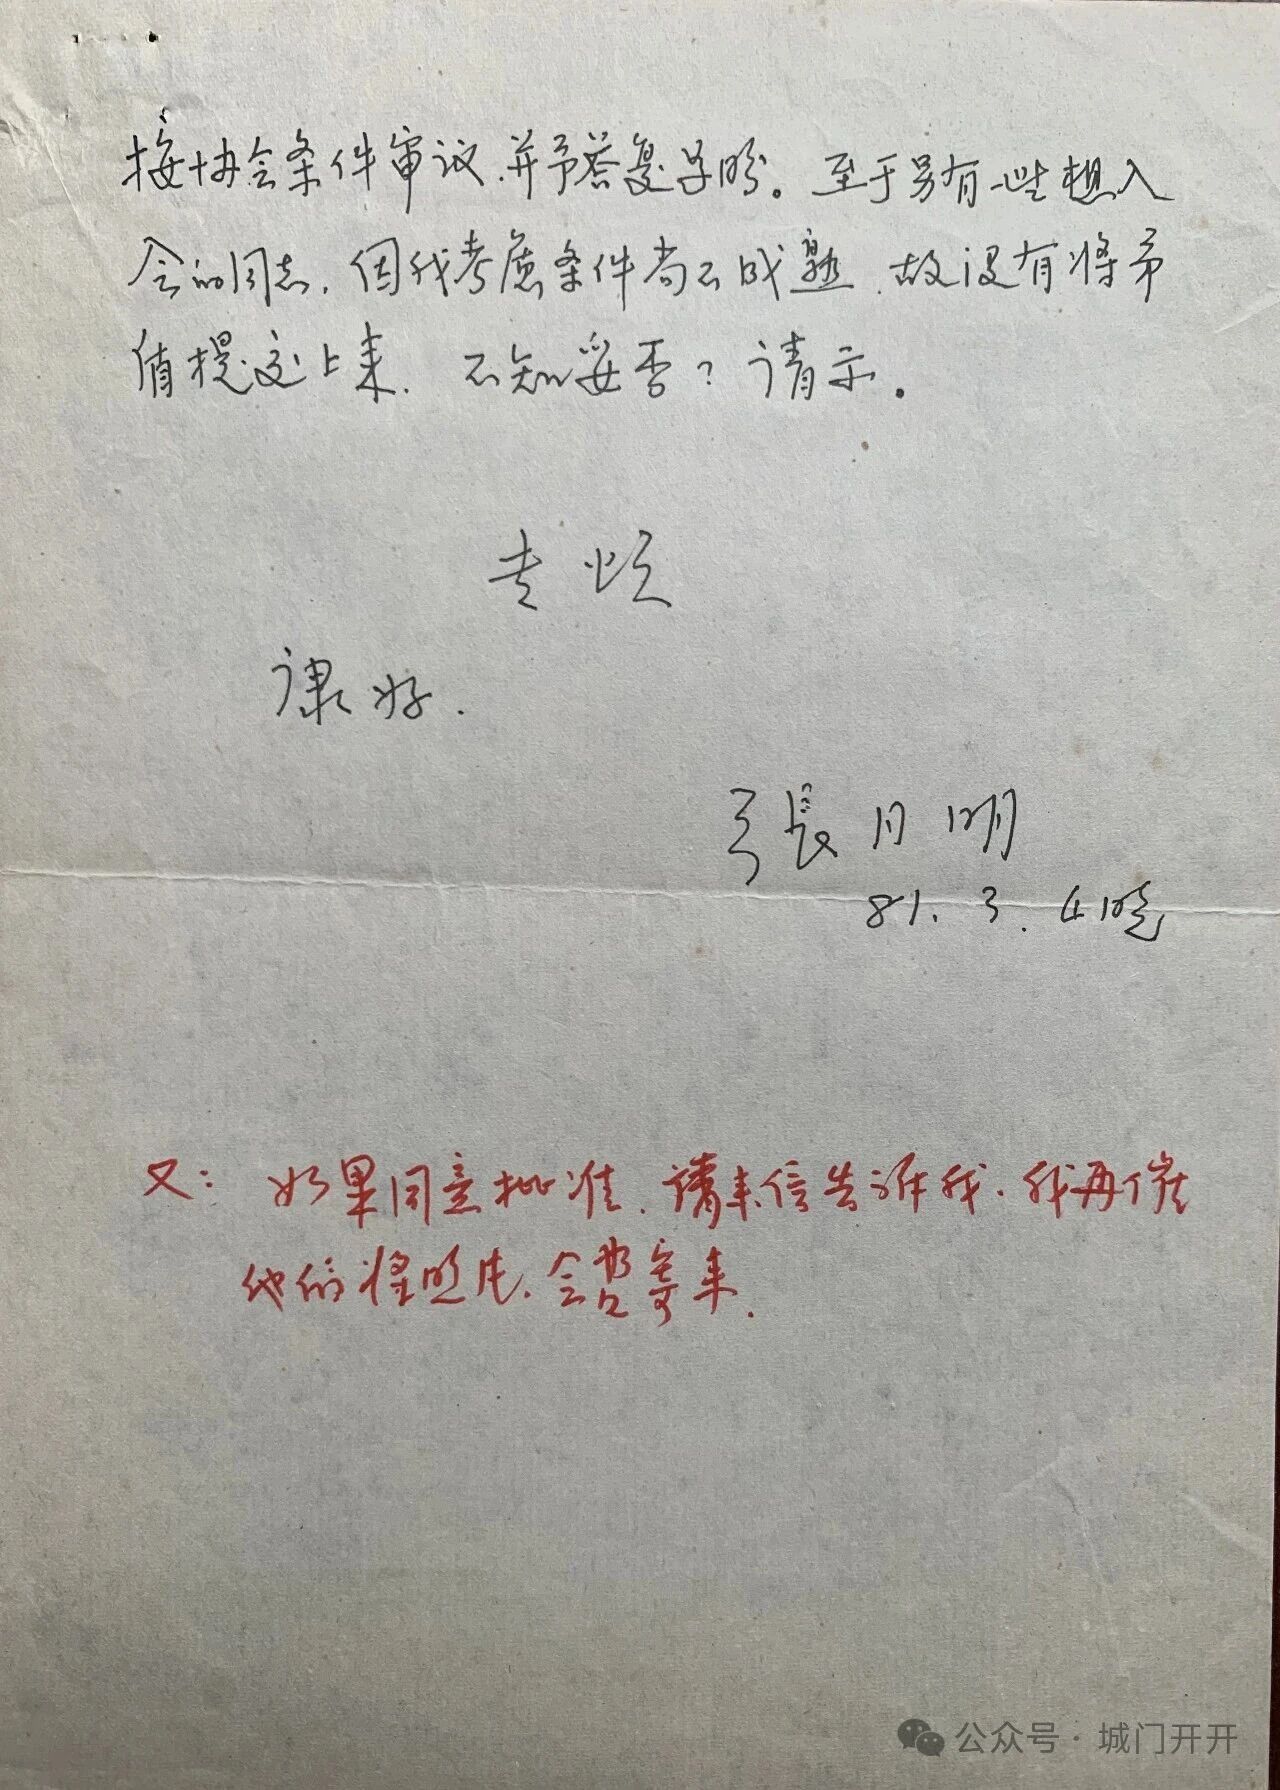 按协会条件审议，并予答复是盼。至于另有一些想入
会的同志，因我考虑条件尚不成熟，故没有将
值提交上来，不知妥否？请示。
专颂
康好.
张月明
81.3.4晚
又：如果同意批准，请来信告诉我，我再催
他们将照片、会费寄来.
公众号·城门开开